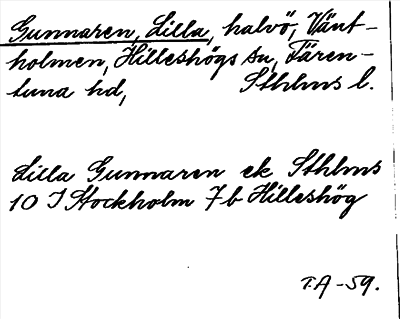 Gunnaren, Lilla, halvö, Vänt-
holmen, Hilleshögs sn, Fären-
tuna hd, Sthlms l.
Lilla Gunnaren ek Sthlms
10 I Stockholm 7b Hilleshög
T.A -59.